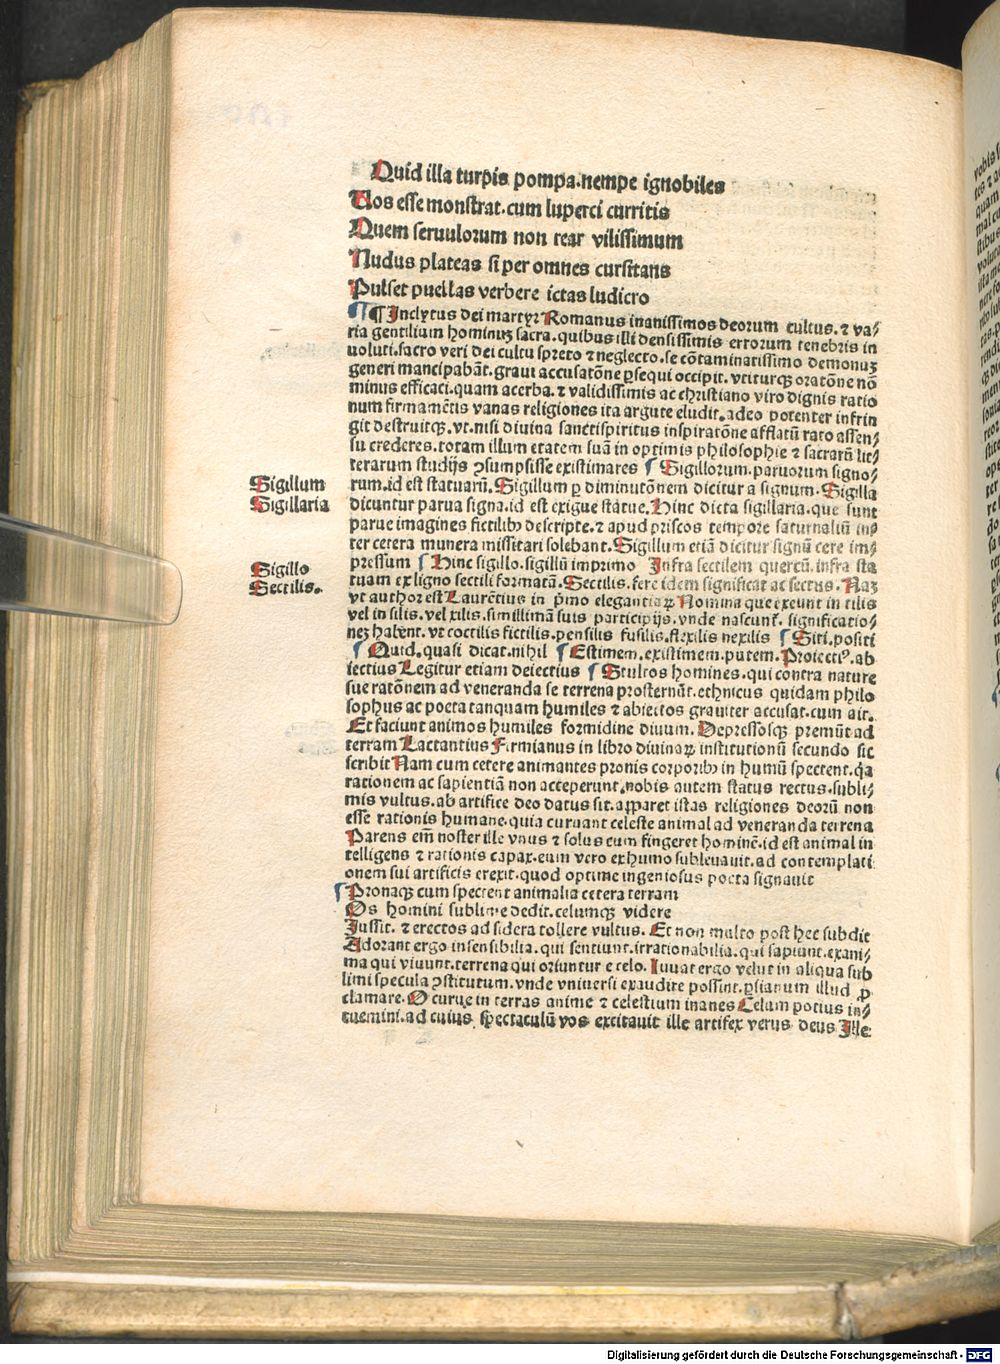 Quid illa turpis pompa.nempe ignobiles
Uos esse monstrat.cum luperci curritis
Quem seruulorum non rear vilissimum
Nudus plateas si per omnes cursitans
Pulset puellas verbere ictas ludicro
¶ Inclytus dei martyr Romanus inanissimos deorum cultus.⁊ va⸗
ria gentilium hominuꝫ sacra.quibus illi densissimis errorum tenebris in
uoluti.sacro veri dei cultu spreto ⁊ neglecto.se cōtaminatissimo demonuꝫ
generi mancipabāt.graui accusatōne ꝑsequi occipit.vtiturqꝫ oratōne nō
minus efficaci.quam acerba.⁊ validissimis ac christiano viro dignis ratio
num firmamētis vanas religiones ita argute eludit.adeo potenter infrin
git destruitqꝫ.vt.nisi diuina sanctispiritus inspiratōne afflatū rato assen⸗
su crederes.totam illum etatem suā in optimis philosophie ⁊ sacrarū lit⸗
terarum studijs ꝯsumpsisse existimares ¶ Sigillorum.paruorum signo⸗
Sigillum rum.id est statuarū.Sigillum ꝑ diminutōnem dicitur a signum.Sigilla
Sigillaria dicuntur parua signa.id est exigue statue.Hinc dicta sigillaria.que sunt
parue imagines fictilibꝫ descripte.⁊ apud priscos tempore saturnaliū in⸗
ter cetera munera missitari solebant.Sigillum etiā dicitur signū cere im⸗
Sigillo pressum ¶ Hinc sigillo.sigillū imprimo Infra sectilem quercū.infra sta
Sectilis. tuam ex ligno sectili formatā.Sectilis.fere idem significat ac sectus.Naꝫ
vt author est Laurētius in pͥmo elegantiaꝝ Nomina que exeunt in tilis
vel in silis.vel xilis.simillimā suis participijs.vnde nascunt̄.significatio⸗
neꝫ habent.vt coctilis fictilis.pensilis fusilis.flexilis nexilis ¶ Siti.positi
¶ Quid.quasi dicat.nihil ¶ Estimem.existimem.putem.Proiectꝰ.ab
iectius Legitur etiam deiectius ¶ Stultos homines.qui contra nature
sue ratōnem ad veneranda se terrena prosternūt.ethnicus quidam philo
sophus ac poeta tanquam humiles ⁊ abiectos grauiter accusat.cum ait.
Et faciunt animos humiles formidine diuum.Depressosqꝫ premūt ad
terram Lactantius Firmianus in libro diuinaꝝ institutionū secundo sic
scribit Nam cum cetere animantes pronis corporibꝫ in humū spectent.qꝛ
rationem ac sapientiā non acceperunt.nobis autem status rectus.subli⸗
mis vultus.ab artifice deo datus sit.apparet istas religiones deorū non
esse rationis humane.quia curuant celeste animal ad veneranda terrena
Parens em̄ noster ille vnus ⁊ solus cum fingeret hominē.id est animal in
telligens ⁊ rationis capax.eum vero ex humo subleuauit.ad contemplati
onem sui artificis erexit.quod optime ingeniosus poeta signauit
¶ Pronaqꝫ cum spectent animalia cetera terram
Os homini sublime dedit.celumqꝫ videre
Jussit.⁊ erectos ad sidera tollere vultus. Et non multo post hec subdit
Adorant ergo insensibilia.qui sentiunt.irrationabilia.qui sapiunt.exani⸗
ma qui viuunt.terrena qui oriuntur e celo.Iuuat ergo velut in aliqua sub
limi specula ꝯstitutum.vnde vniuersi exaudire possint.ꝑsianum illud ꝓ
clamare.O curue in terras anime ⁊ celestium inanes Celum potius in⸗
tuemini.ad cuius spectaculū vos excitauit ille artifex verus deus Ille
Digitalisierung gefördert durch die Deutsche Forschungsgemeinschaft - DFG